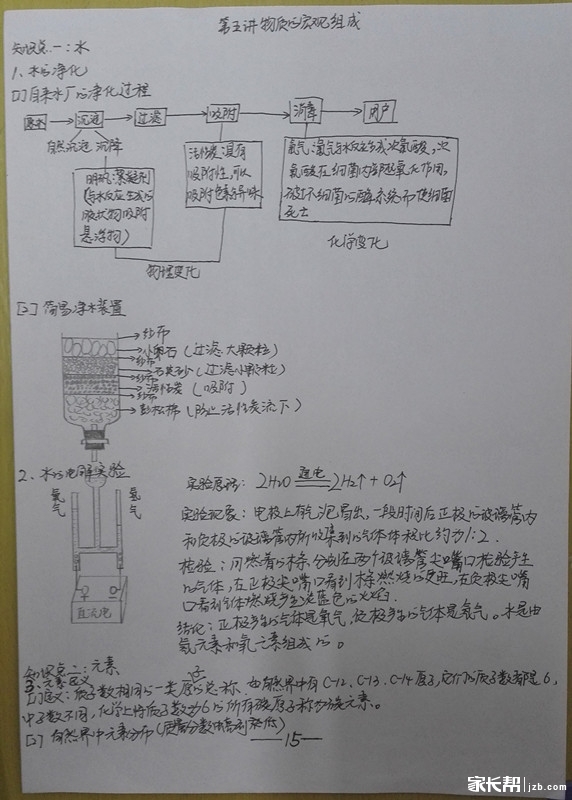 第五讲 物质的宏观组成
知识点一：水
1、水的净化
[1] 自来水厂的净化过程
原水 沉淀 过滤 吸附 消毒 用户
自然沉淀 沉降
明矾：凝剂(与水反应生成的胶状物吸附悬浮物)
活性炭：具有吸附性，可以吸附色素异味
氯气：氯气与水反应生成次氯酸，次氯酸在细菌内部起氧化作用，破坏细菌的酶系统而使细菌死亡
物理变化
化学变化
[2] 简易净水装置
纱布
小卵石(过滤大颗粒)
纱布
石英砂(过滤小颗粒)
纱布
活性炭(吸附)
纱布
蓬松棉(防止活性炭流下)
2、水的电解实验
氧气 氢气
直流电
实验原理：2H2O 通电 2H2↑+O2↑
实验现象：电极上有气泡冒出，一段时间后正极的玻璃管内
和负极的玻璃管内所收集到的气体体积比约为1:2.
检验：用燃着的木条，分别在两个玻璃管尖嘴口检验产生
的气体，在正极尖嘴口看到木条燃烧的更旺，在负极尖嘴
口看到气体燃烧产生淡蓝色的火焰.
结论：正极产生的气体是氧气，负极产生的气体是氢气。水是由
氢元素和氧元素组成的。
知识点二：元素
3、元素定义
[1] 定义：质子数相同的一类原子的总称. 如自然界中有C-12、C-13、C-14原子，它们的质子数都是6，
中子数不同，化学上将质子数为6的所有碳原子称为碳元素。
[2] 自然界中元素分布(质量分数由高到低)
—15—
家长帮 jzb.com